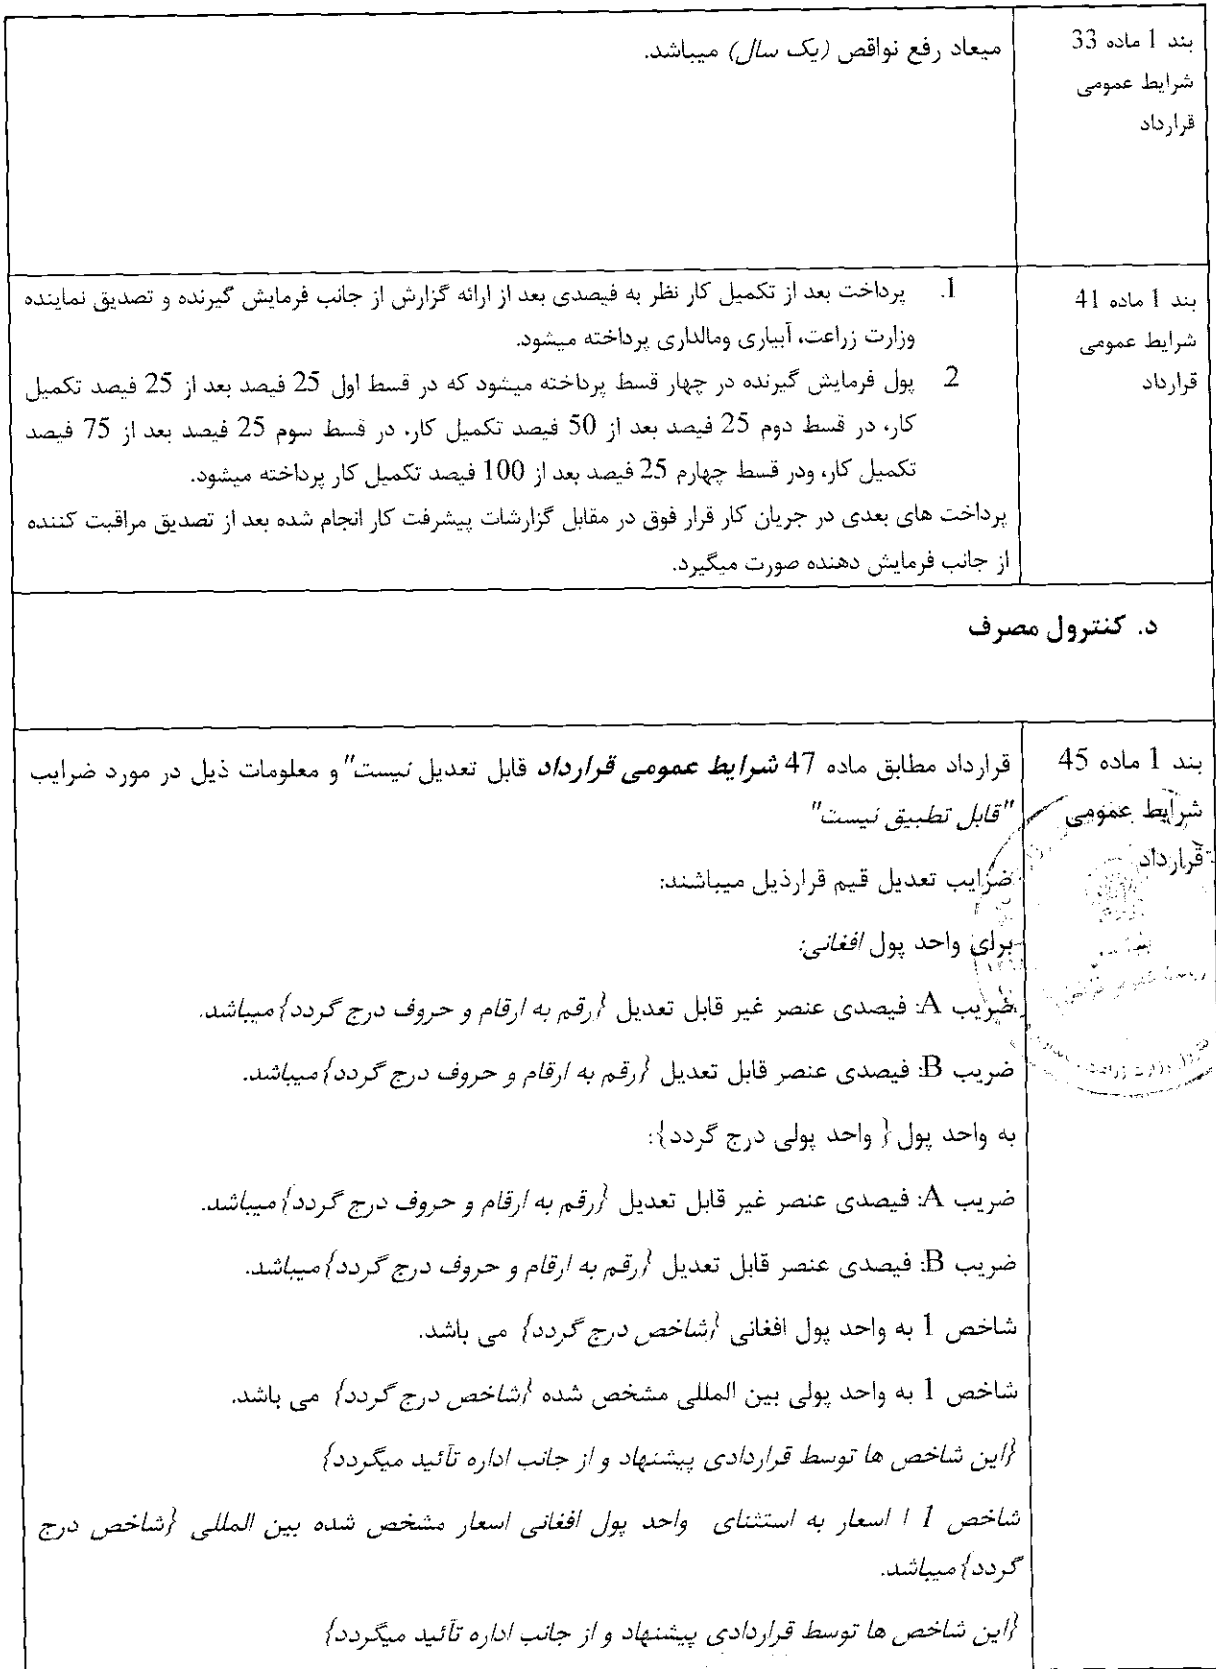 بند 1 ماده 33
شرایط عمومی
قرارداد
میعاد رفع نواقص (یک سال) میباشد.
بند 1 ماده 41
شرایط عمومی
قرارداد
1. پرداخت بعد از تکمیل کار نظر به فیصدی بعد از ارائه گزارش از جانب فرمایش گیرنده و تصدیق نماینده
وزارت زراعت، آبیاری ومالداری پرداخته میشود.
2 پول فرمایش گیرنده در چهار قسط پرداخته میشود که در قسط اول 25 فیصد بعد از 25 فیصد تکمیل
کار، در قسط دوم 25 فیصد بعد از 50 فیصد تکمیل کار، در قسط سوم 25 فیصد بعد از 75 فیصد
تکمیل کار، ودر قسط چهارم 25 فیصد بعد از 100 فیصد تکمیل کار پرداخته میشود.
پرداخت های بعدی در جریان کار قرار فوق در مقابل گزارشات پیشرفت کار انجام شده بعد از تصدیق مراقبت کننده
از جانب فرمایش دهنده صورت میگیرد.
د. کنترول مصرف
بند 1 ماده 45
شرایط عمومی
قرارداد
قرارداد مطابق ماده 47 شرایط عمومی قرارداد قابل تعدیل نیست" و معلومات ذیل در مورد ضرایب
"قابل تطبیق نیست"
ضرایب تعدیل قیم قرارذیل میباشند:
برای واحد پول افغانی:
ضریب A: فیصدی عنصر غیر قابل تعدیل {رقم به ارقام و حروف درج گردد} میباشد.
ضریب B: فیصدی عنصر قابل تعدیل {رقم به ارقام و حروف درج گردد} میباشد.
به واحد پول { واحد پولی درج گردد}:
ضریب A: فیصدی عنصر غیر قابل تعدیل {رقم به ارقام و حروف درج گردد} میباشد.
ضریب B: فیصدی عنصر قابل تعدیل {رقم به ارقام و حروف درج گردد} میباشد.
شاخص 1 به واحد پول افغانی {شاخص درج گردد} می باشد.
شاخص 1 به واحد پولی بین المللی مشخص شده {شاخص درج گردد} می باشد.
{این شاخص ها توسط قراردادی پیشنهاد و از جانب اداره تآئید میگردد}
شاخص 1 ا اسعار به استثنای واحد پول افغانی اسعار مشخص شده بین المللی {شاخص درج
گردد} میباشد.
{این شاخص ها توسط قراردادی پیشنهاد و از جانب اداره تآئید میگردد}